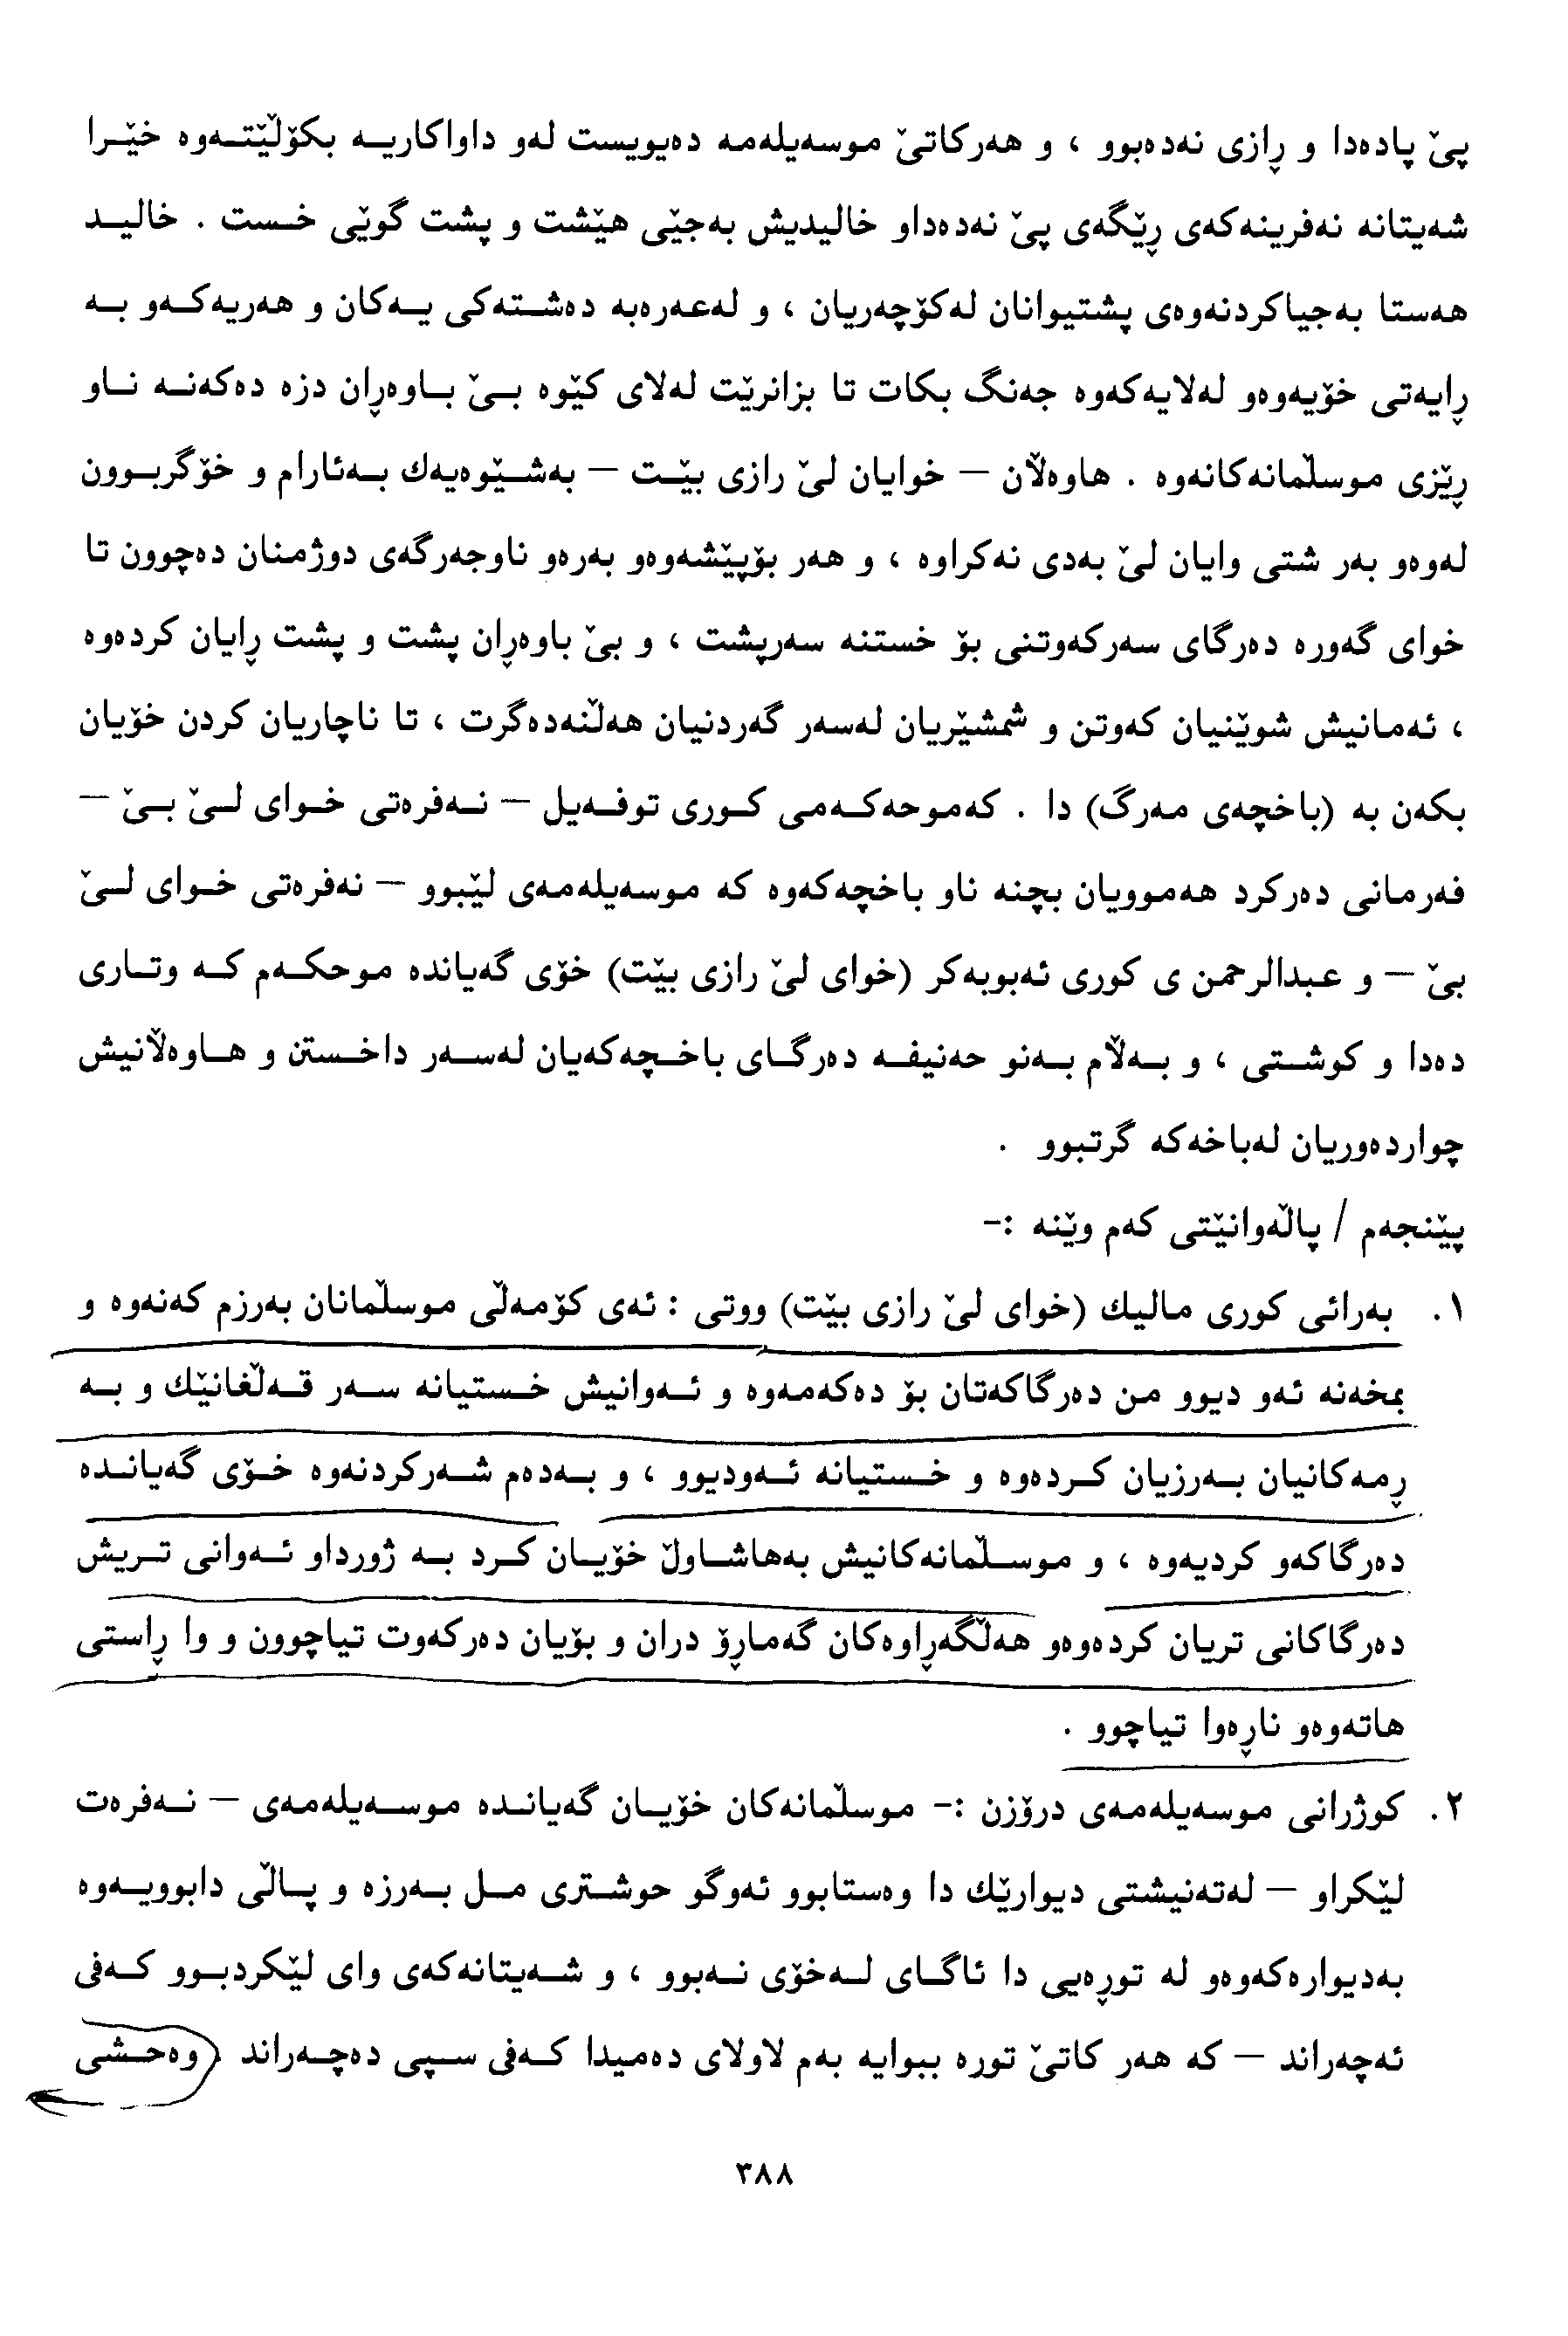 پێ پادەدا و ڕازی نەدەبوو ، و هەرکاتێ موسەیلەمە دەیویست لەو داواکاریـە بکۆڵێتـەوە خێـرا
شەیتانە نەفرینەکەی ڕێگەی پێ نەدەداو خالیدیش بەجێی هێشت و پشت گوێی خـست . خالیـد
هەستا بەجیاکردنەوەی پشتیوانان لەکۆچەریان ، و لەعەرەبە دەشـتەکی یـەکان و هەریەکـەو بـە
ڕایەتی خۆیەوەو لەلایەکەوە جەنگ بکات تا بزانرێت لەلای کێوە بـێ بـاوەڕان دزە دەکەنـە نـاو
ڕێزی موسڵمانەکانەوە . هاوەڵان – خوایان لێ رازی بێـت – بەشـێوەیەك بـەئارام و خۆگربـوون
لەوەو بەر شتی وایان لێ بەدی نەکراوە ، و هەر بۆپێشەوەو بەرەو ناوجەرگەی دوژمنان دەچوون تا
خوای گەورە دەرگای سەرکەوتنی بۆ خستنە سەرپشت ، و بێ باوەڕان پشت و پشت ڕایان کردەوە
، ئەمانیش شوێنیان کەوتن و شمشێریان لەسەر گەردنیان هەڵنەدەگرت ، تا ناچاریان کردن خۆیان
بکەن بە (باخچەی مەرگ) دا . کەموحەکـەمی کـوری توفـەیل – نـەفرەتی خـوای لـێ بـێ –
فەرمانی دەرکرد هەموویان بچنە ناو باخچەکەوە کە موسەیلەمەی لێبوو – نەفرەتی خـوای لـێ
بێ – و عبدالرحمن ی کوری ئەبوبەکر (خوای لێ رازی بێت) خۆی گەیاندە موحکـەم کـە وتـاری
دەدا و کوشـتی ، و بـەڵام بـەنو حەنیفـە دەرگـای باخـچەکەیان لەسـەر داخـستن و هـاوەڵانیش
چواردەوریان لەباخەکە گرتبوو .
پێنجەم / پاڵەوانێتی کەم وێنە :-
١. بەرائی کوری مالیك (خوای لێ رازی بێت) ووتی : ئەی کۆمەڵی موسڵمانان بەرزم کەنەوە و
بمخەنە ئەو دیوو من دەرگاکەتان بۆ دەکەمەوە و ئـەوانیش خـستیانە سـەر قـەڵغانێك و بـە
ڕمەکانیان بـەرزیان کـردەوە و خـستیانە ئـەودیوو ، و بـەدەم شـەرکردنەوە خـۆی گەیانـدە
دەرگاکەو کردیەوە ، و موسـڵمانەکانیش بەهاشـاوڵ خۆیـان کـرد بـە ژورداو ئـەوانی تـریش
دەرگاکانی تریان کردەوەو هەڵگەڕاوەکان گەمارۆ دران و بۆیان دەرکەوت تیاچوون و وا ڕاستی
هاتەوەو ناڕەوا تیاچوو .
٢. کوژرانی موسەیلەمەی درۆزن :- موسڵمانەکان خۆیـان گەیانـدە موسـەیلەمەی – نـەفرەت
لێکراو – لەتەنیشتی دیوارێك دا وەستابوو ئەوگو حوشـتری مـل بـەرزە و پـاڵی دابوویـەوە
بەدیوارەکەوەو لە توڕەیی دا ئاگـای لـەخۆی نـەبوو ، و شـەیتانەکەی وای لێکردبـوو کـەفی
ئەچەراند – کە هەر کاتێ تورە ببوایە بەم لاولای دەمیدا کـەفی سـپی دەچـەراند ، وەحـشی
٣٨٨